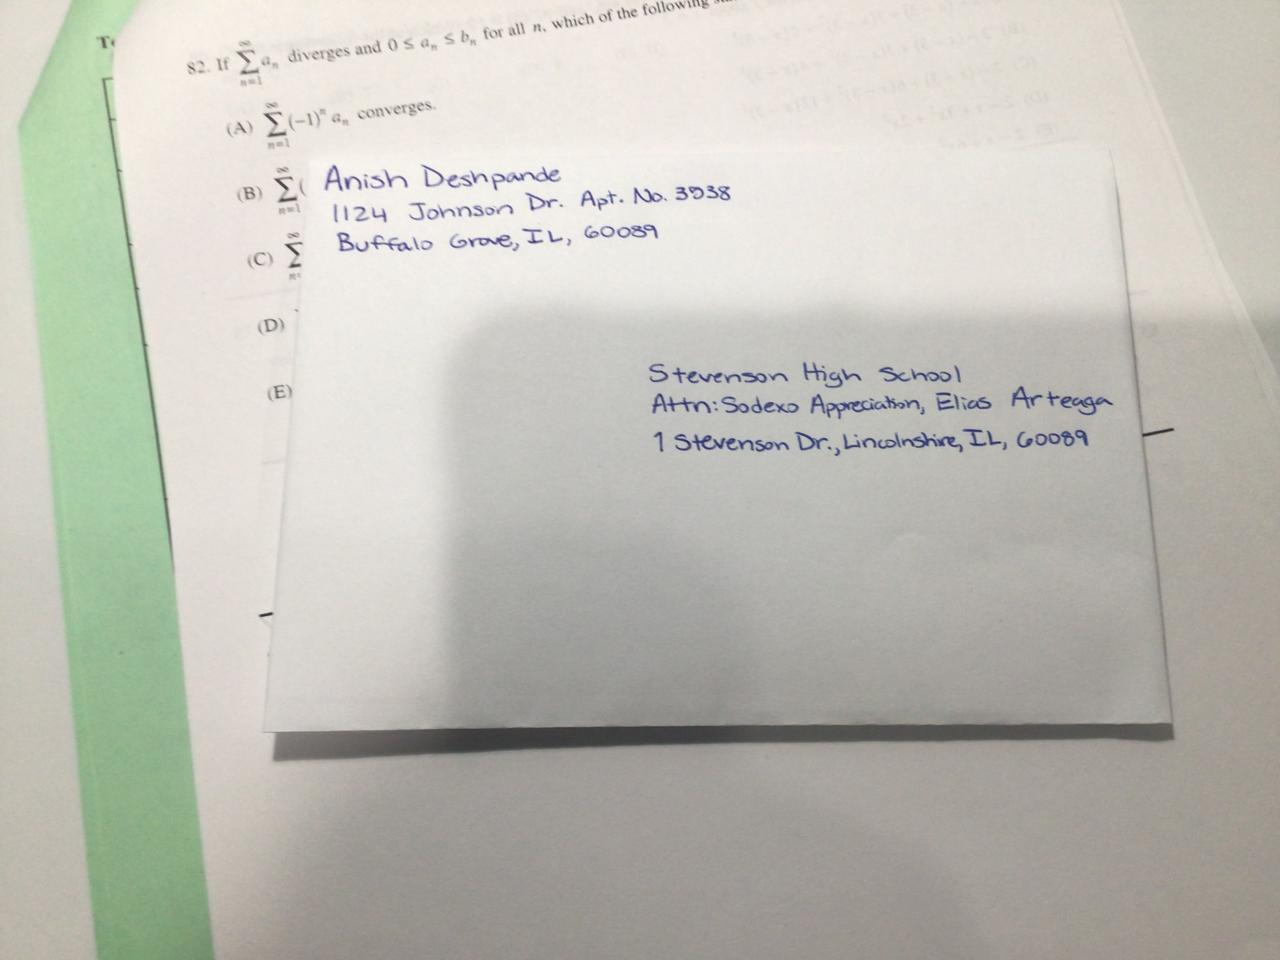 Te
82. If ∞ Σ n=1 aₙ diverges and 0 ≤ aₙ ≤ bₙ for all n, which of the following
(A) ∞ Σ n=1 (−1)ⁿ aₙ converges.
(B) ∞ Σ n=1 (
(C) ∞ Σ
(D)
(E)
Anish Deshpande
1124 Johnson Dr. Apt. No. 3938
Buffalo Grove, IL, 60089
Stevenson High School
Attn: Sodexo Appreciation, Elias Arteaga
1 Stevenson Dr., Lincolnshire, IL, 60089